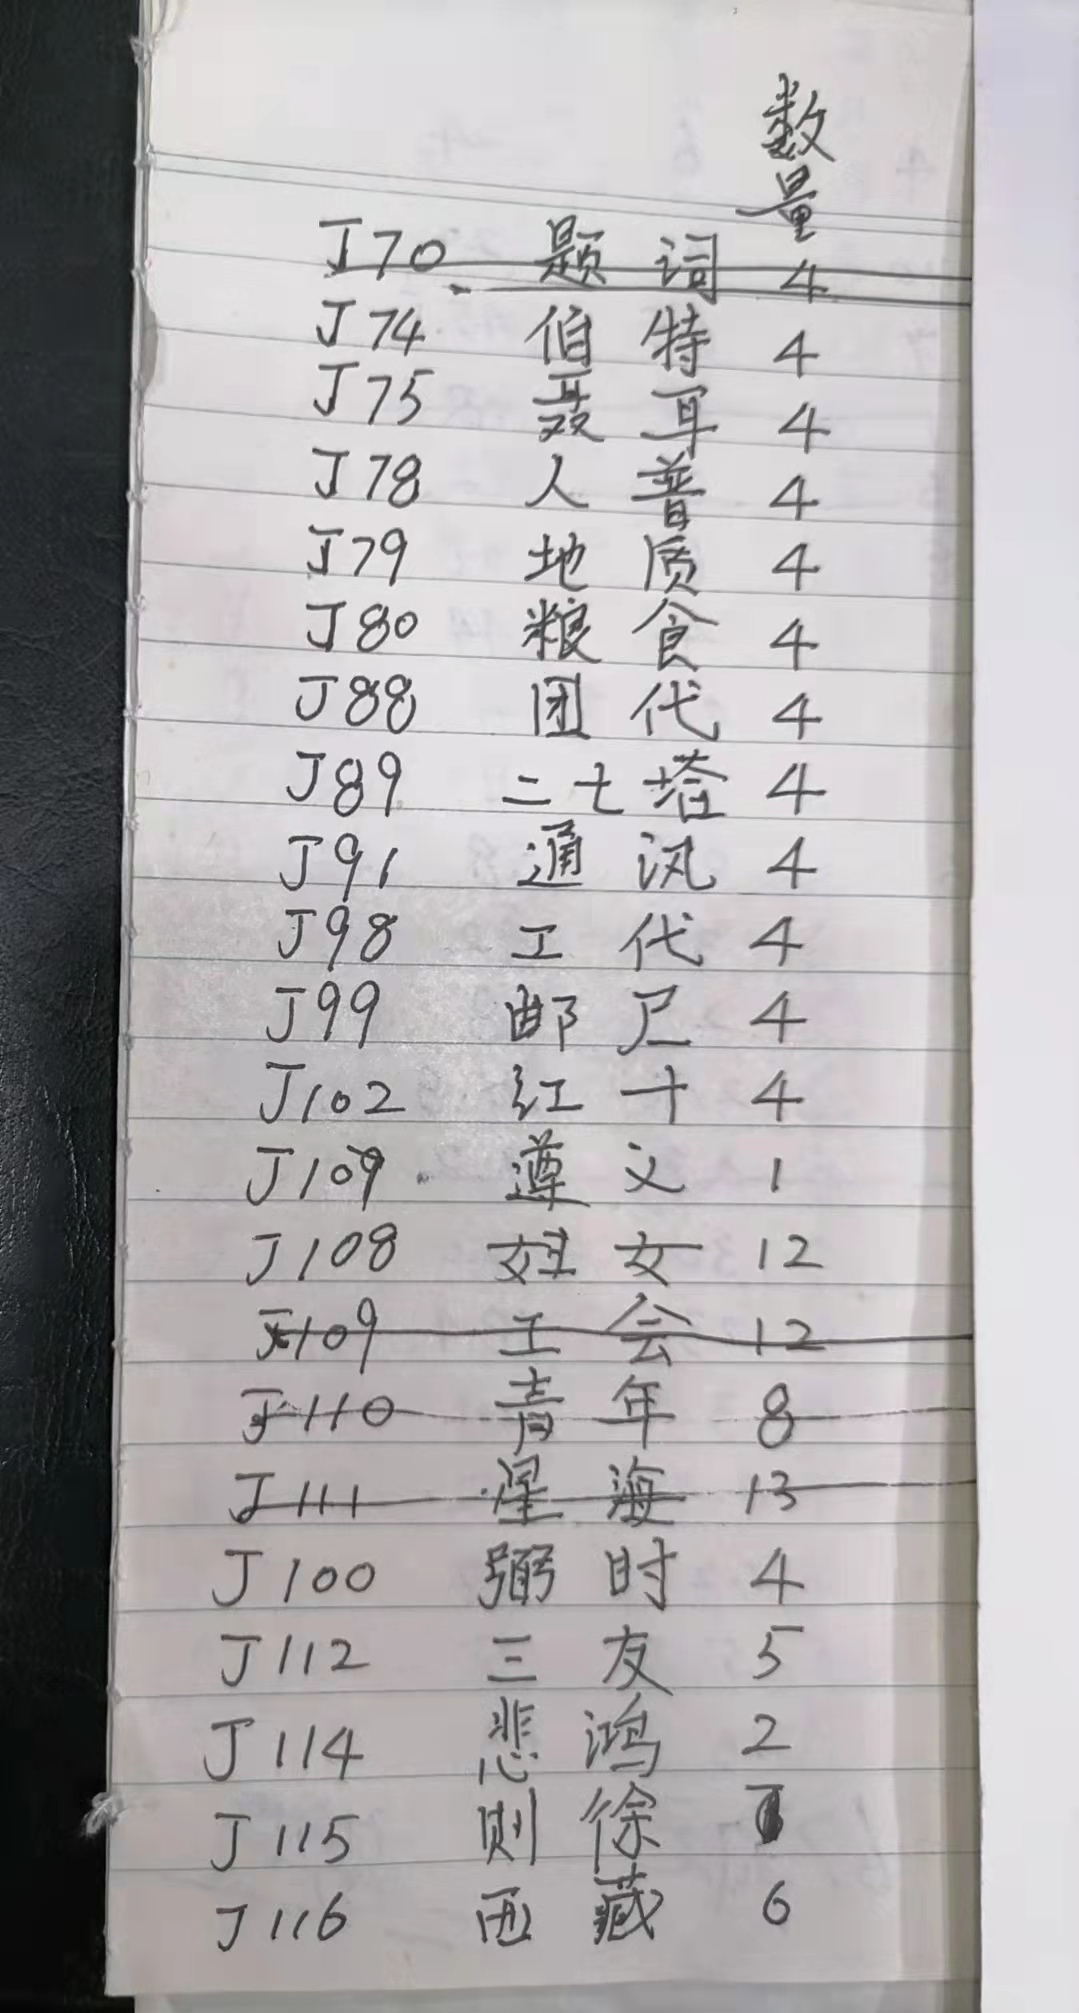 数量
J70 题词 4
J74 伯特 4
J75 聂耳 4
J78 人普 4
J79 地质 4
J80 粮食 4
J88 团代 4
J89 二七塔 4
J91 通汛 4
J98 工代 4
J99 邮卫 4
J102 红十 4
J109 遵义 1
J108 妇女 12
J109 工会 12
J110 青年 8
J111 星海 13
J100 弼时 4
J112 三友 5
J114 悲鸿 2
J115 则徐
J116 西藏 6